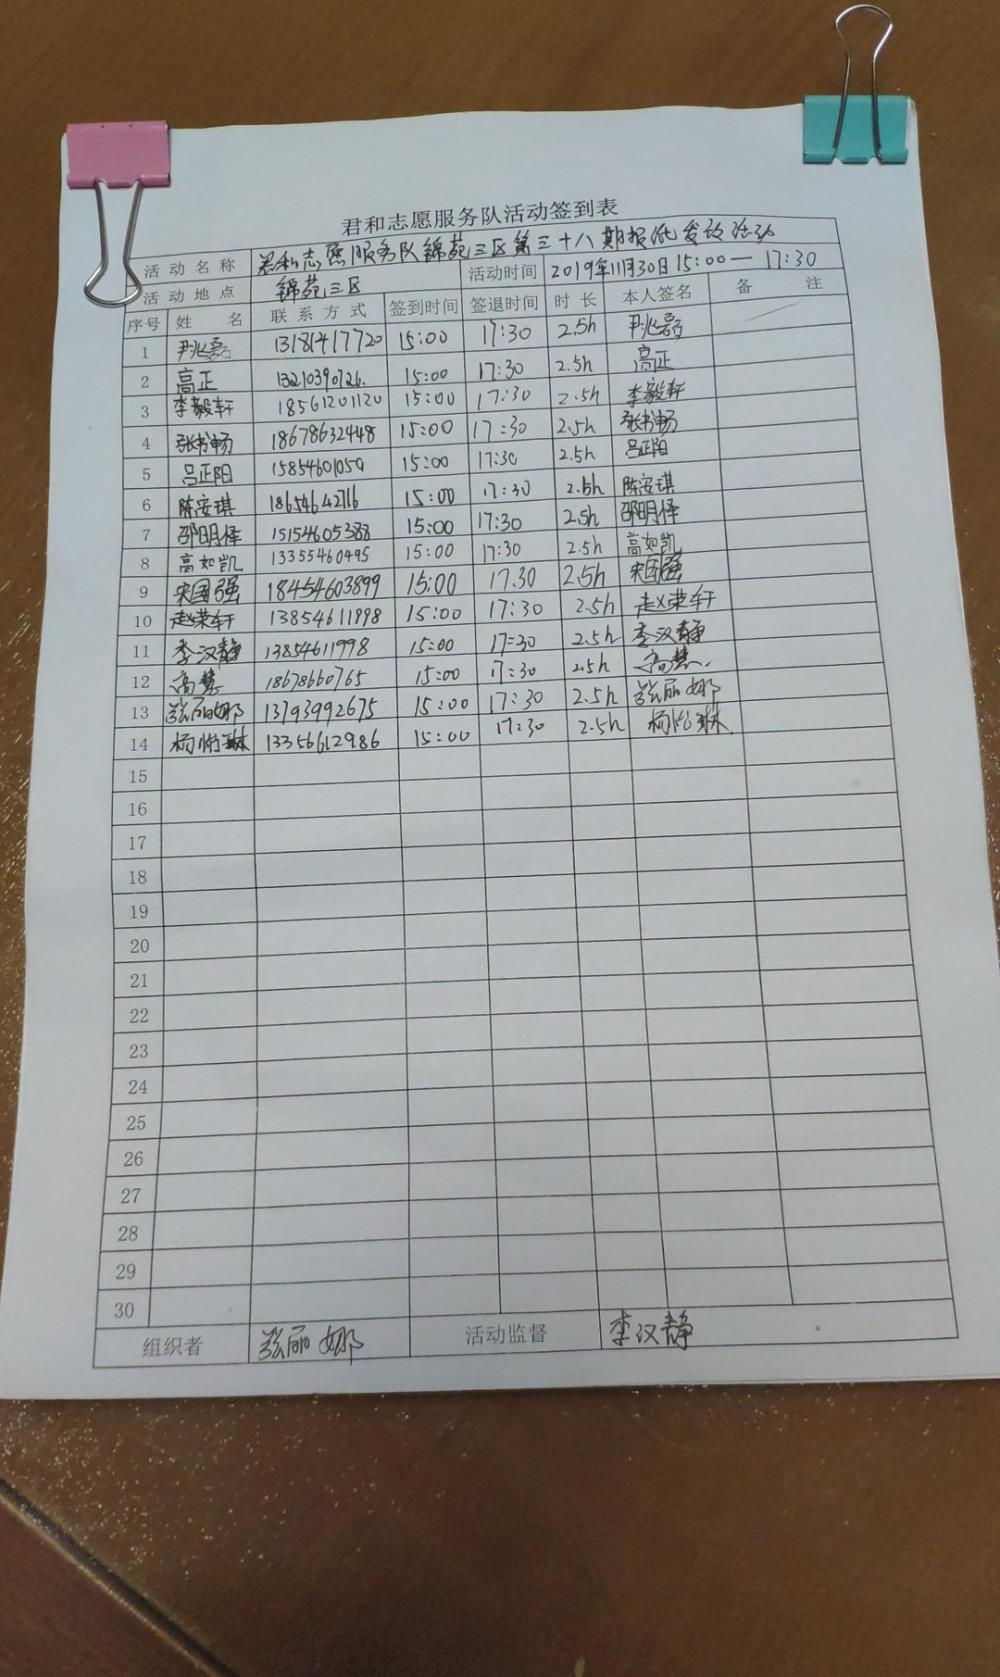 君和志愿服务队活动签到表
活动名称 君和志愿服务队锦苑三区第三十八期报纸发放活动
活动地点 锦苑三区 活动时间 2019年11月30日15:00—17:30
序号 姓名 联系方式 签到时间 签退时间 时长 本人签名 备注
1 尹兆磊 13181417720 15:00 17:30 2.5h 尹兆磊
2 高正 13210390726. 15:00 17:30 2.5h 高正
3 李毅轩 18561201120 15:00 17:30 2.5h 李毅轩
4 张书畅 18678632448 15:00 17:30 2.5h 张书畅
5 吕正阳 15854601059 15:00 17:30 2.5h 吕正阳
6 陈安琪 18654642716 15:00 17:30 2.5h 陈安琪
7 邵明泽 15154605388 15:00 17:30 2.5h 邵明泽
8 高如凯 13355460495 15:00 17:30 2.5h 高如凯
9 宋国强 18454603899 15:00 17.30 2.5h 宋国强
10 赵荣轩 13854611998 15:00 17:30 2.5h 赵荣轩
11 李汉静 13854611998 15:00 17:30 2.5h 李汉静
12 高慧 18678660765 15:00 17:30 2.5h 高慧.
13 张丽娜 13793992675 15:00 17:30 2.5h 张丽娜
14 杨怡琳 13356612986 15:00 17:30 2.5h 杨怡琳
15
16
17
18
19
20
21
22
23
24
25
26
27
28
29
30
组织者 张丽娜 活动监督 李汉静